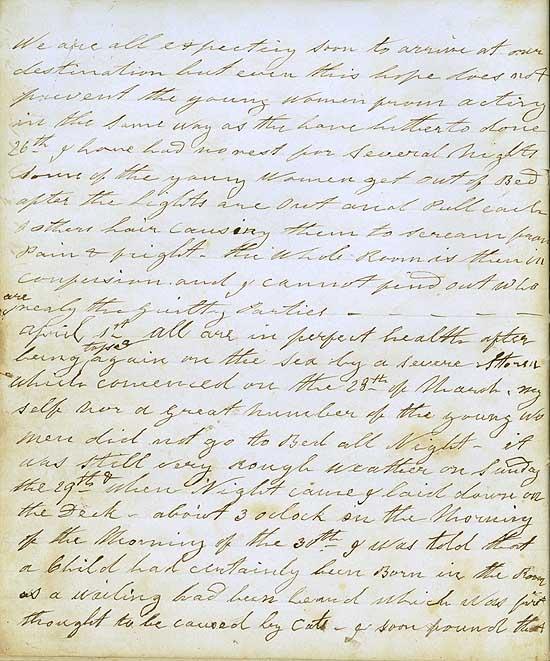 We are all expecting soon to arrive at our
destination but even this hope does not
prevent the young Women from acting
in the same way as the have hitherto done
26th I have had no rest for several Nights
some of the young Women get out of Bed
after the Lights are Out and Pull each
others hair causing them to scream from
Pain & fright - the Whole Room is then in
confusion and I cannot find out who
are
realy the Guilty Parties - - - - -
April 1st all are in perfect health after
being tossed again on the Sea by a severe Storm
which comenced on the 28th of March. my
self nor a great number of the young wo
men did not go to Bed all Night - it
was still very rough weather on Sunday
the 29th & when Night came I laid down on
the Deck - about 3 oclock on the Morning
of the Morning of the 30th I was told that
a Child had certainly been Born in the Room
as a wailing had been heard which was first
thought to be caused by Cats - I soon found that